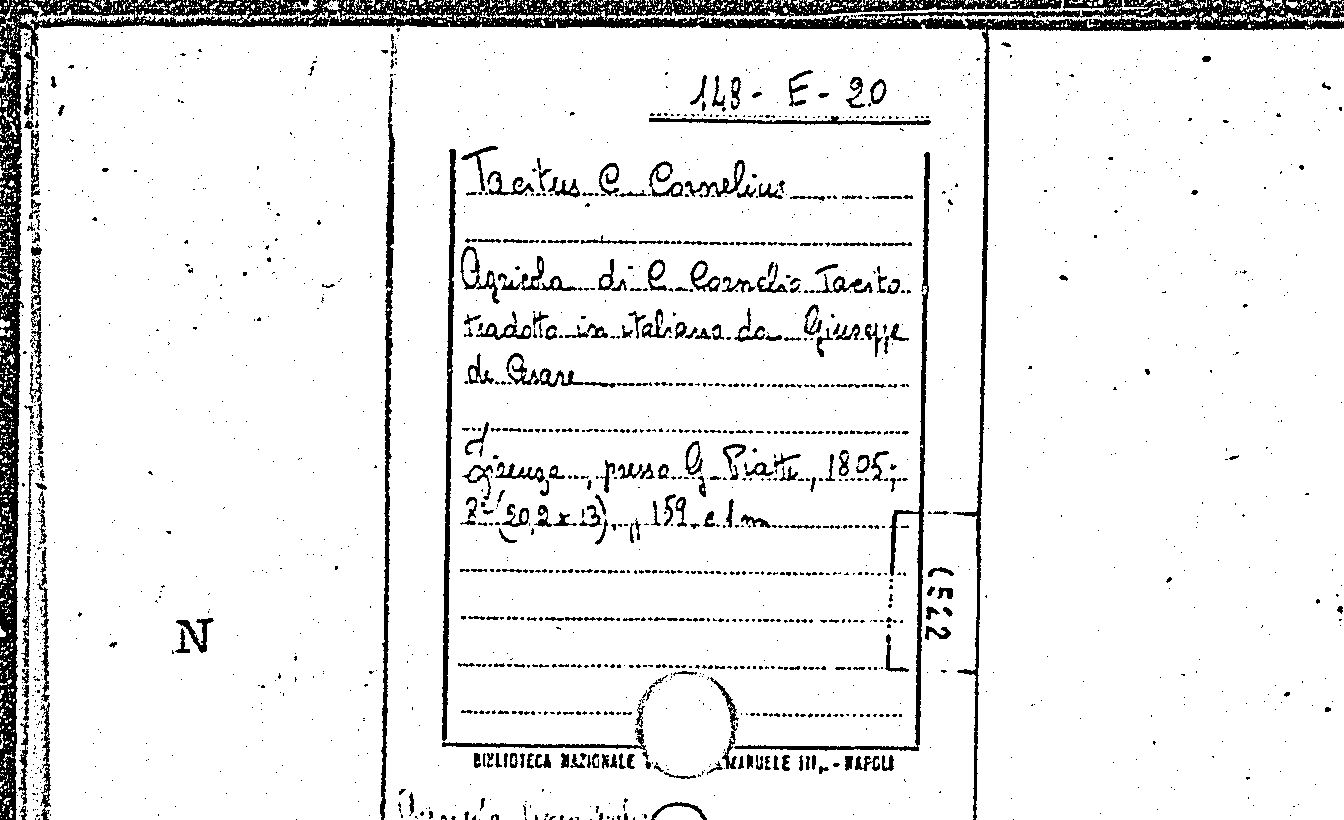 148 - E - 20
Tacitus C. Cornelius
Agricola di C. Cornelio Tacito
tradotta in italiano da Giuseppe
de Cesare
Firenze, presso G. Piatti, 1805;
8º (20,2 x 13). „ 159. e 1 m
N
BIBLIOTECA NAZIONALE MANUELE III,. - NAPOLI